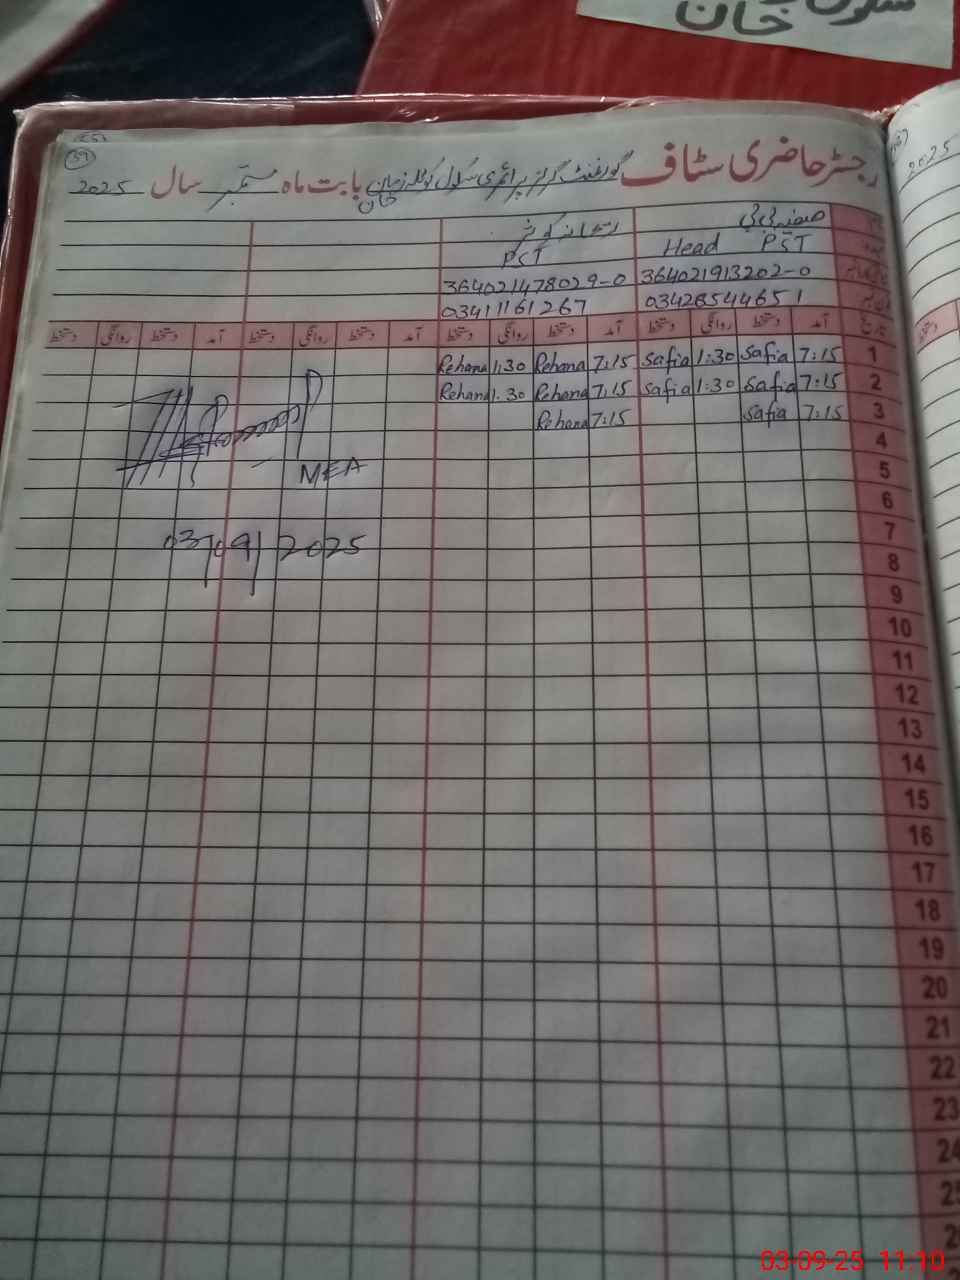 خان
2025
39
رجسٹر حاضری سٹاف گورنمنٹ گرلز پرائمری سکول بابت ماہ ستمبر سال 2025
خان
صفیہ بی بی ریحانہ کوثر
Head PST PST
364021913202-0 364021478029-0
03428544651 03411161267
تاریخ آمد دستخط روانگی دستخط آمد دستخط روانگی دستخط آمد دستخط روانگی دستخط آمد دستخط روانگی دستخط
1 7:15 Safia 1:30 Safia 7:15 Rehana 1:30 Rehana
2 7:15 Safia 1:30 Safia 7:15 Rehana 1:30 Rehana
3 7:15 Safia 7:15 Rehana
4
5
MEA
6
7
03/09/2025
8
9
10
11
12
13
14
15
16
17
18
19
20
21
22
23
24
25
03-09-25 11:10